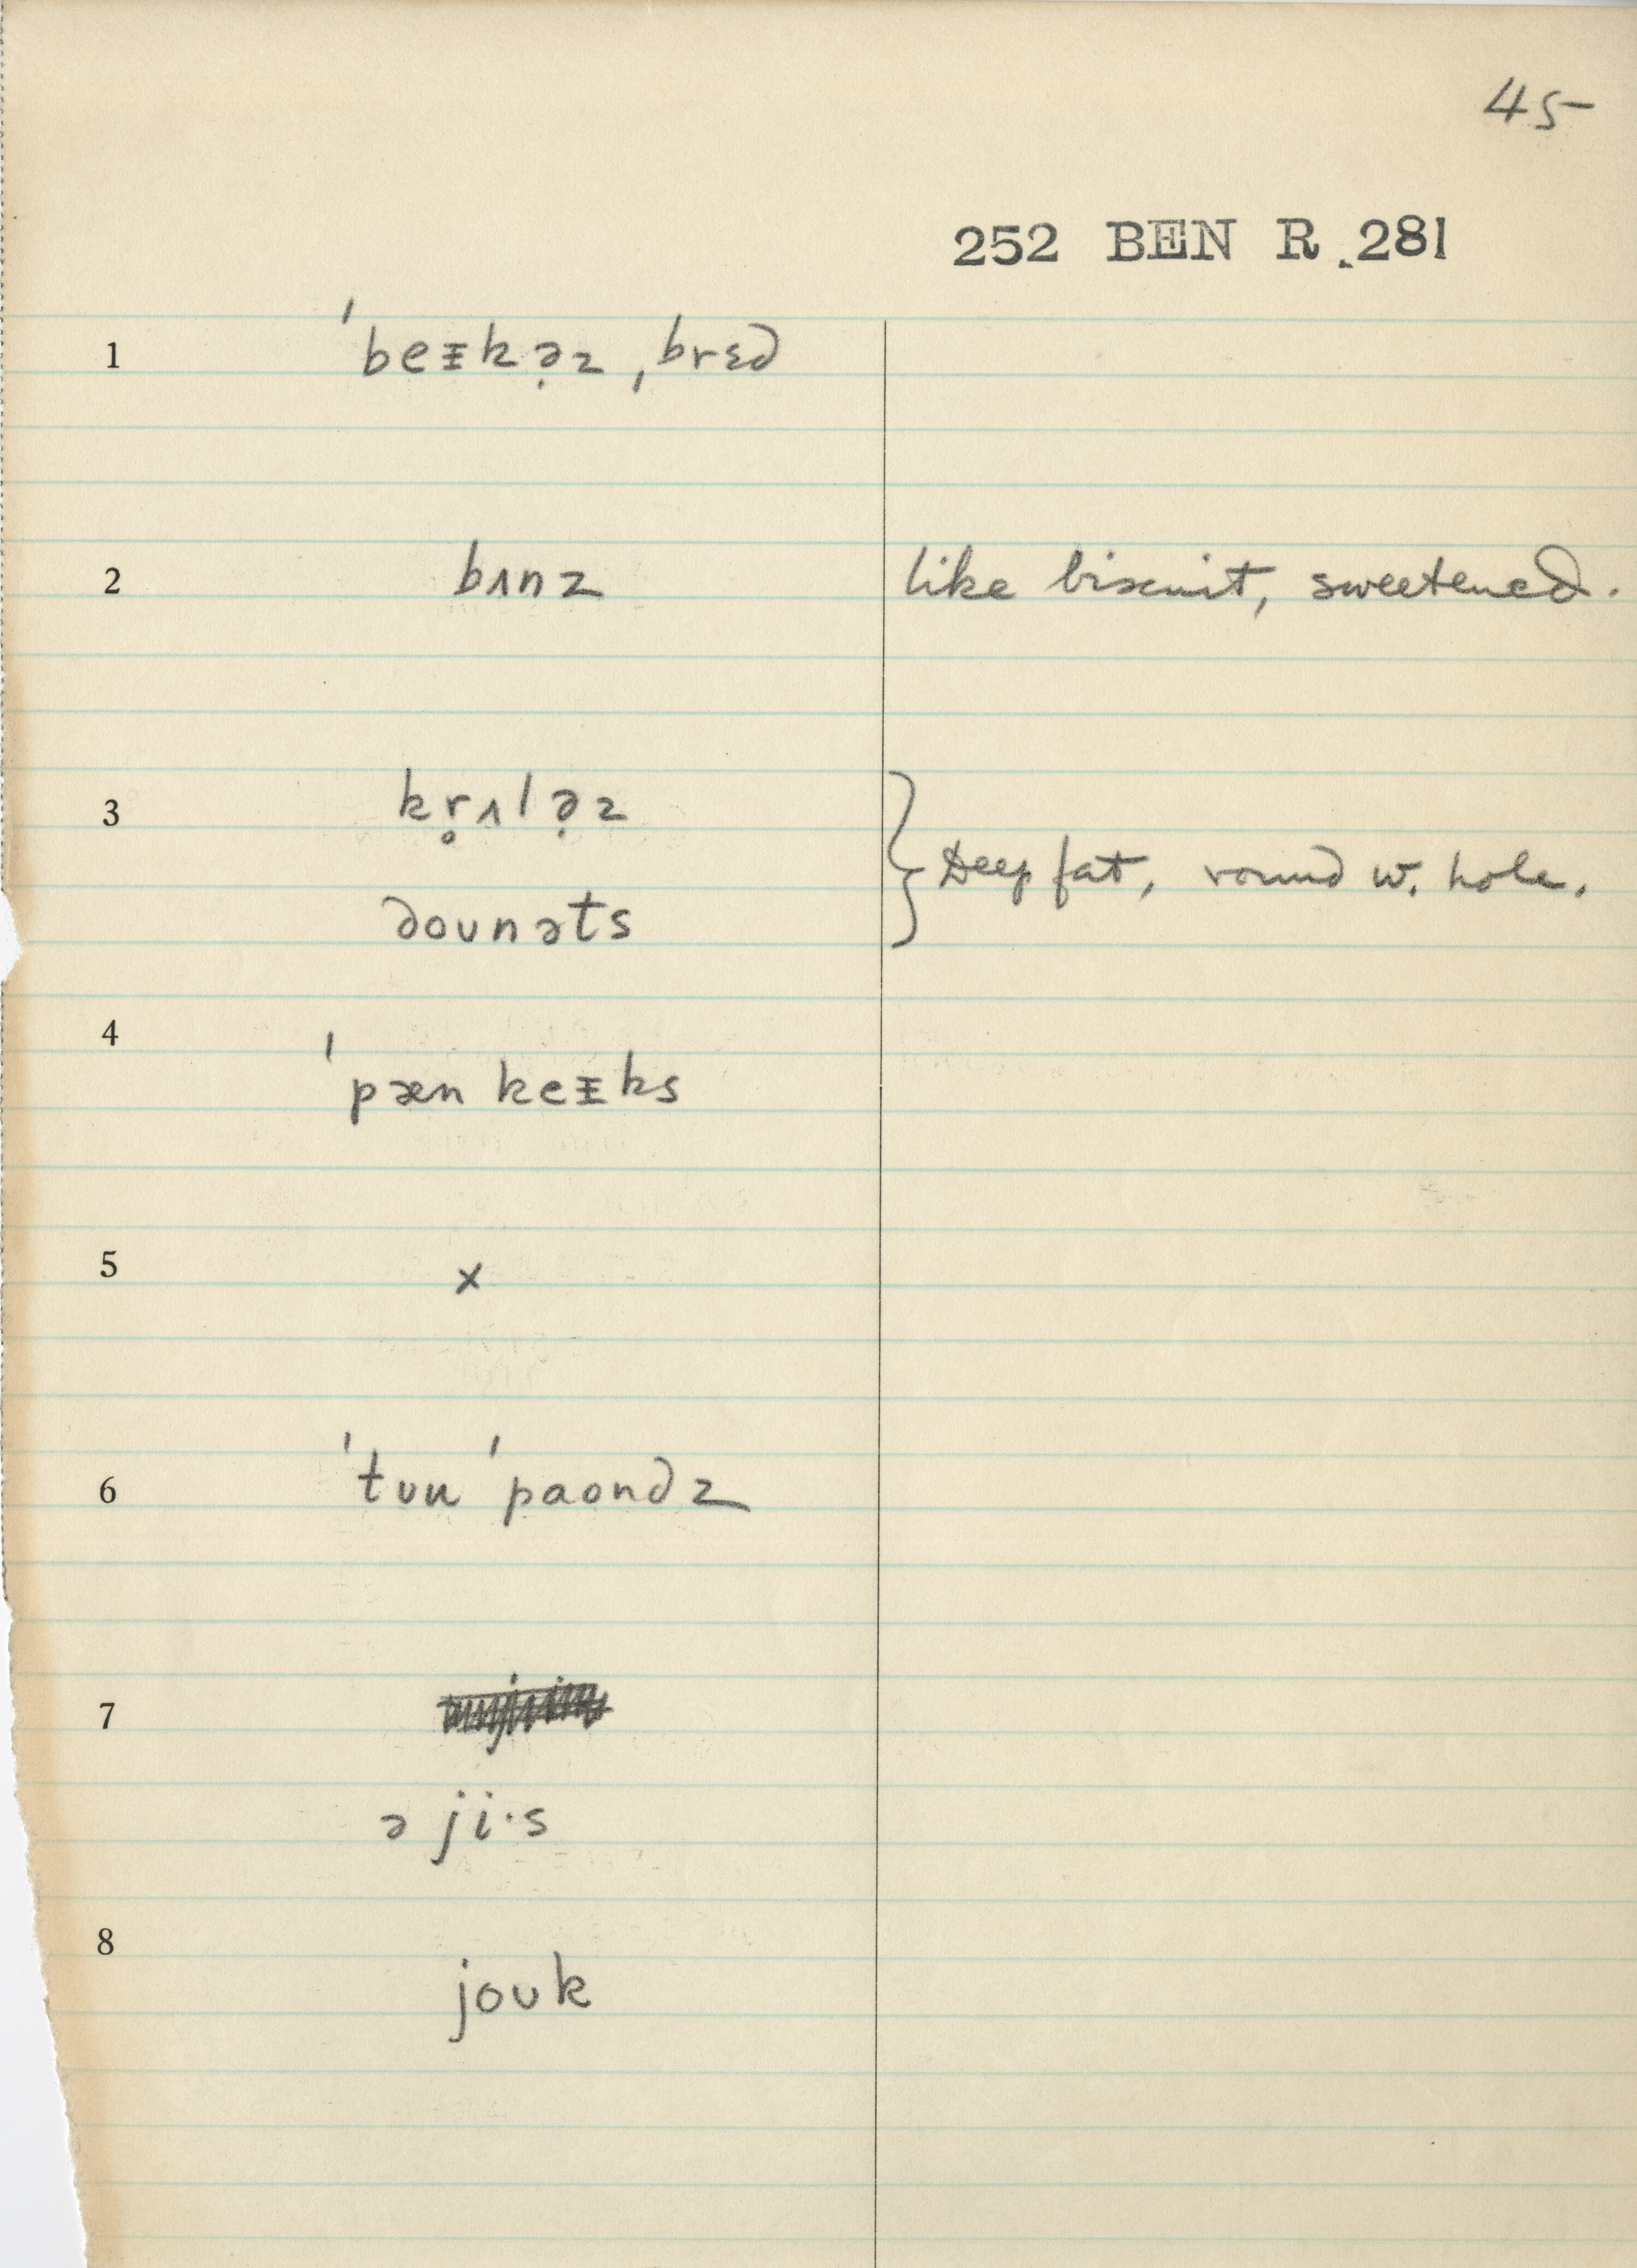 45
252 BEN R.281
1 ˈbeᵻkə̣z ˌbrɛd
2 bʌnz like biscuit, sweetened.
3 kr̥ʌlə̣z
Deep fat, round w. hole.
doʊnəts
4 ˈpæn keᵻks
5 x
6 ˈtʊu ˈpaʊndz
7
ə ji·s
8 joʊk